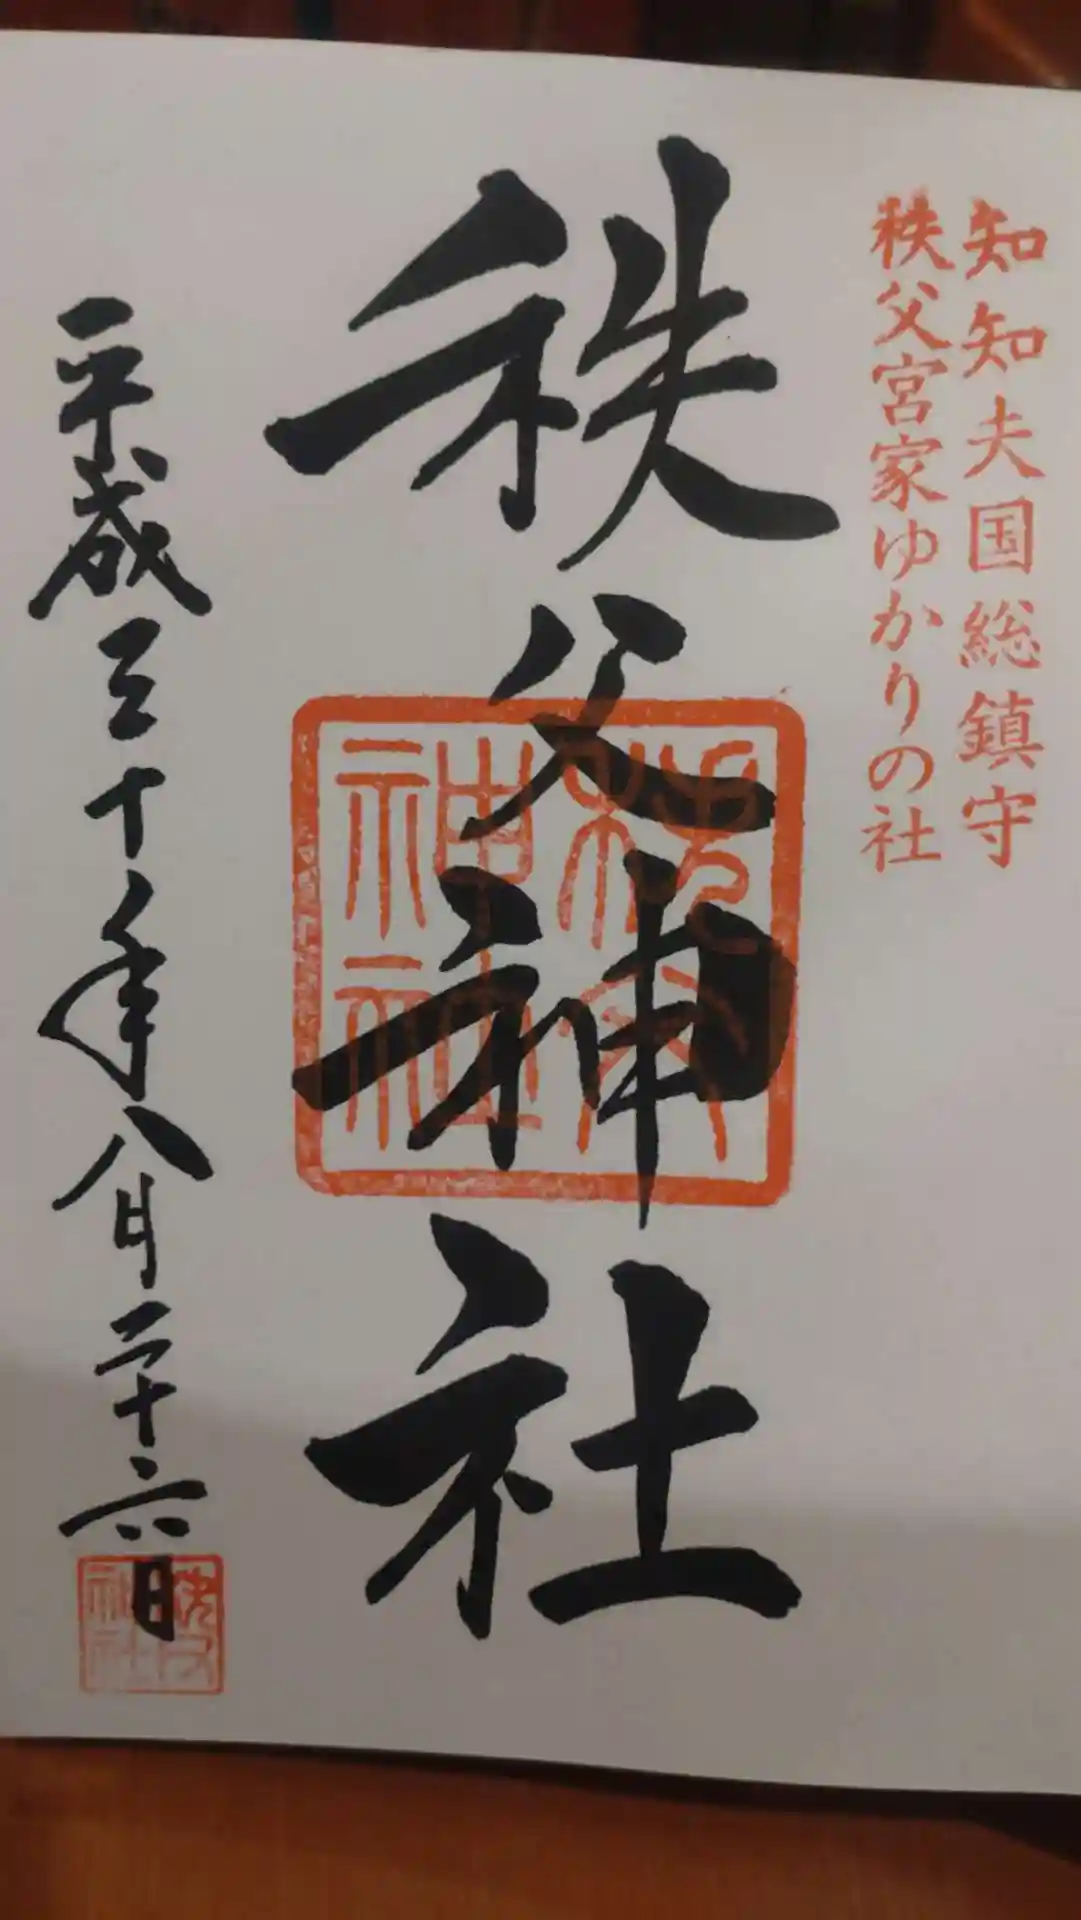 知知夫国総鎮守
秩父宮家ゆかりの社
秩父神社
秩父神社
平成三十年八月二十六日
秩父神社